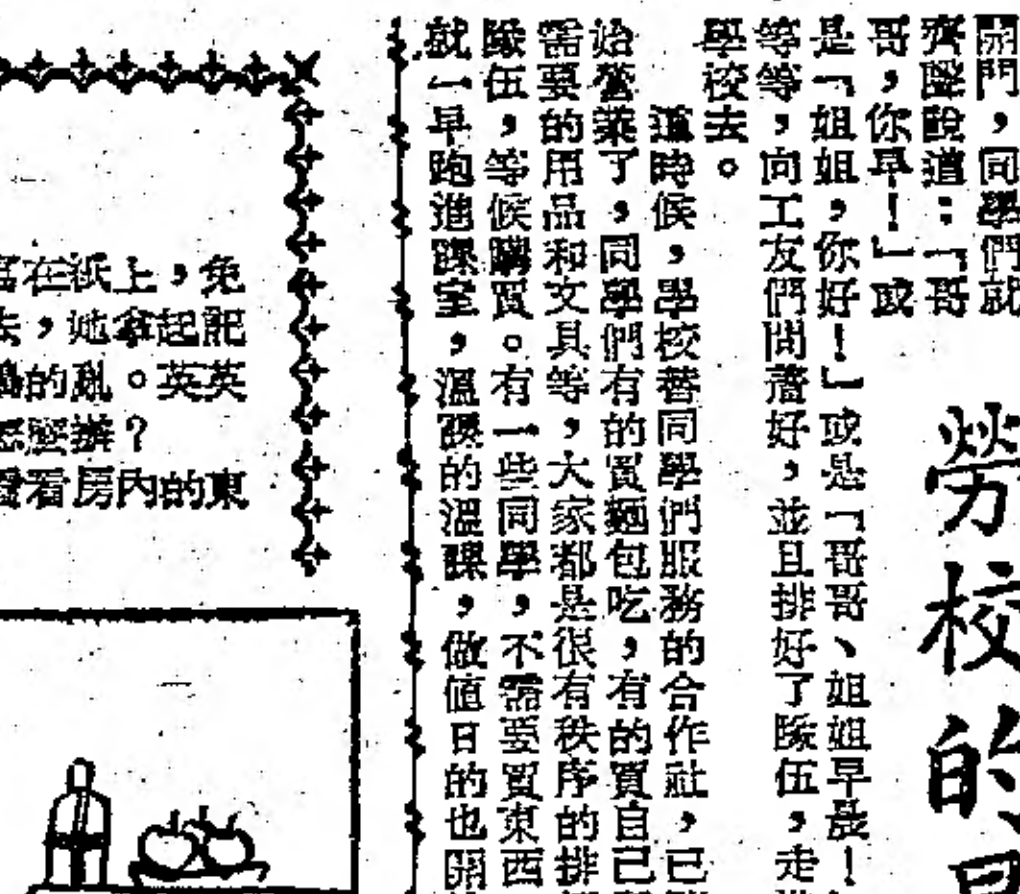 勞校的
開門，同學們就
齊聲說道：「哥
哥，你早！」或
是「姐姐，你好！」或是「哥哥、姐姐早晨！
等等，向工友們問候好，並且排好了隊伍，走
學校去。
這時候，學校替同學們服務的合作社，已
始營業了，同學們有的買麵包吃，有的買自己
需要的用品和文具等，大家都是很有秩序的排
隊伍，等候購買。有一些同學，不需要買東西
就一早跑進課室，溫課的溫課，做值日的也開
寫在紙上，免
去，她拿起肥
的亂。英英
怎麼辦？
看看房內的東